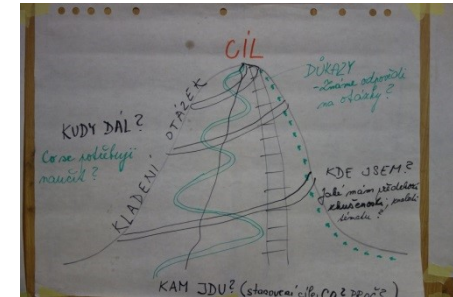 CÍL
DŮKAZY
- Známe odpovědi
na otázky?
KUDY DÁL?
Co se potřebuji
naučit?
KLADENÍ OTÁZEK
KDE JSEM?
Jaké mám předchozí
zkušenosti,
KAM JDU? (stanovení cíle, CO? PROČ?)